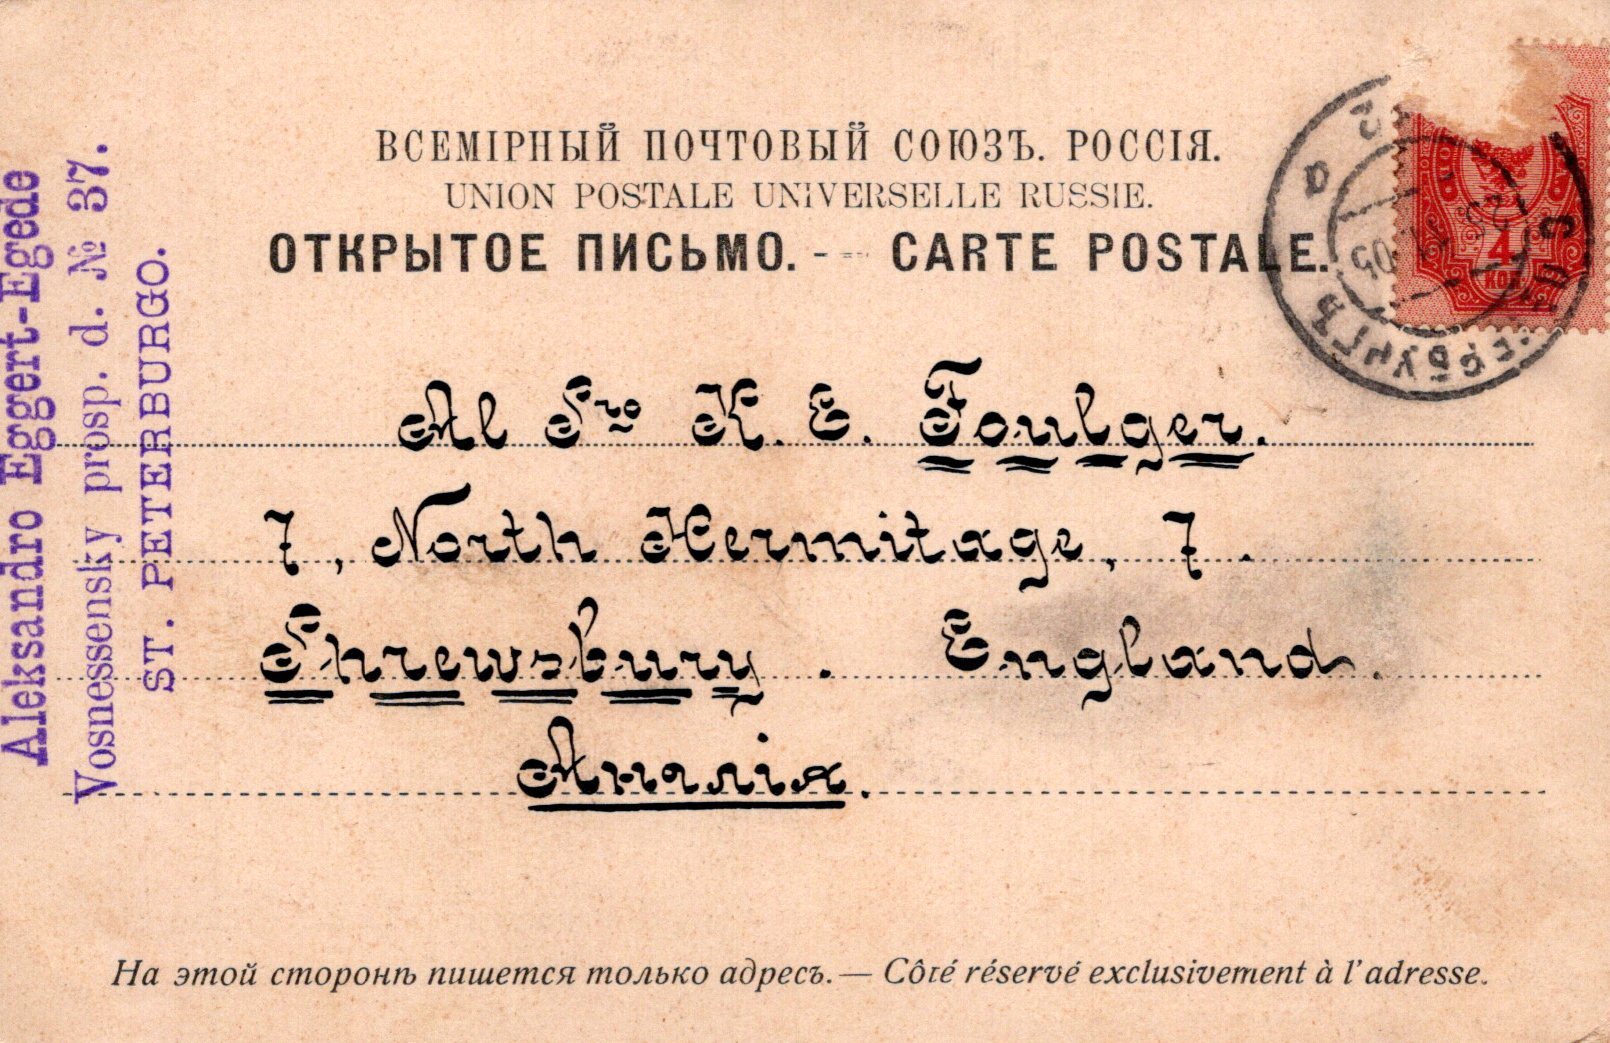 ВСЕМІРНЫЙ ПОЧТОВЫЙ СОЮЗЪ. РОССІЯ.
UNION POSTALE UNIVERSELLE RUSSIE.
ОТКРЫТОЕ ПИСЬМО. - - CARTE POSTALE.
Al Sro K. E. Foulger.
7, North Hermitage, 7.
Shrewsbury. England.
Англія.
На этой сторонѣ пишется только адресъ. — Côté réservé exclusivement à l'adresse.
Aleksandro Eggert-Egede
Vosnessensky prosp. d. № 37.
ST. PETERBURGO.
4
КОП